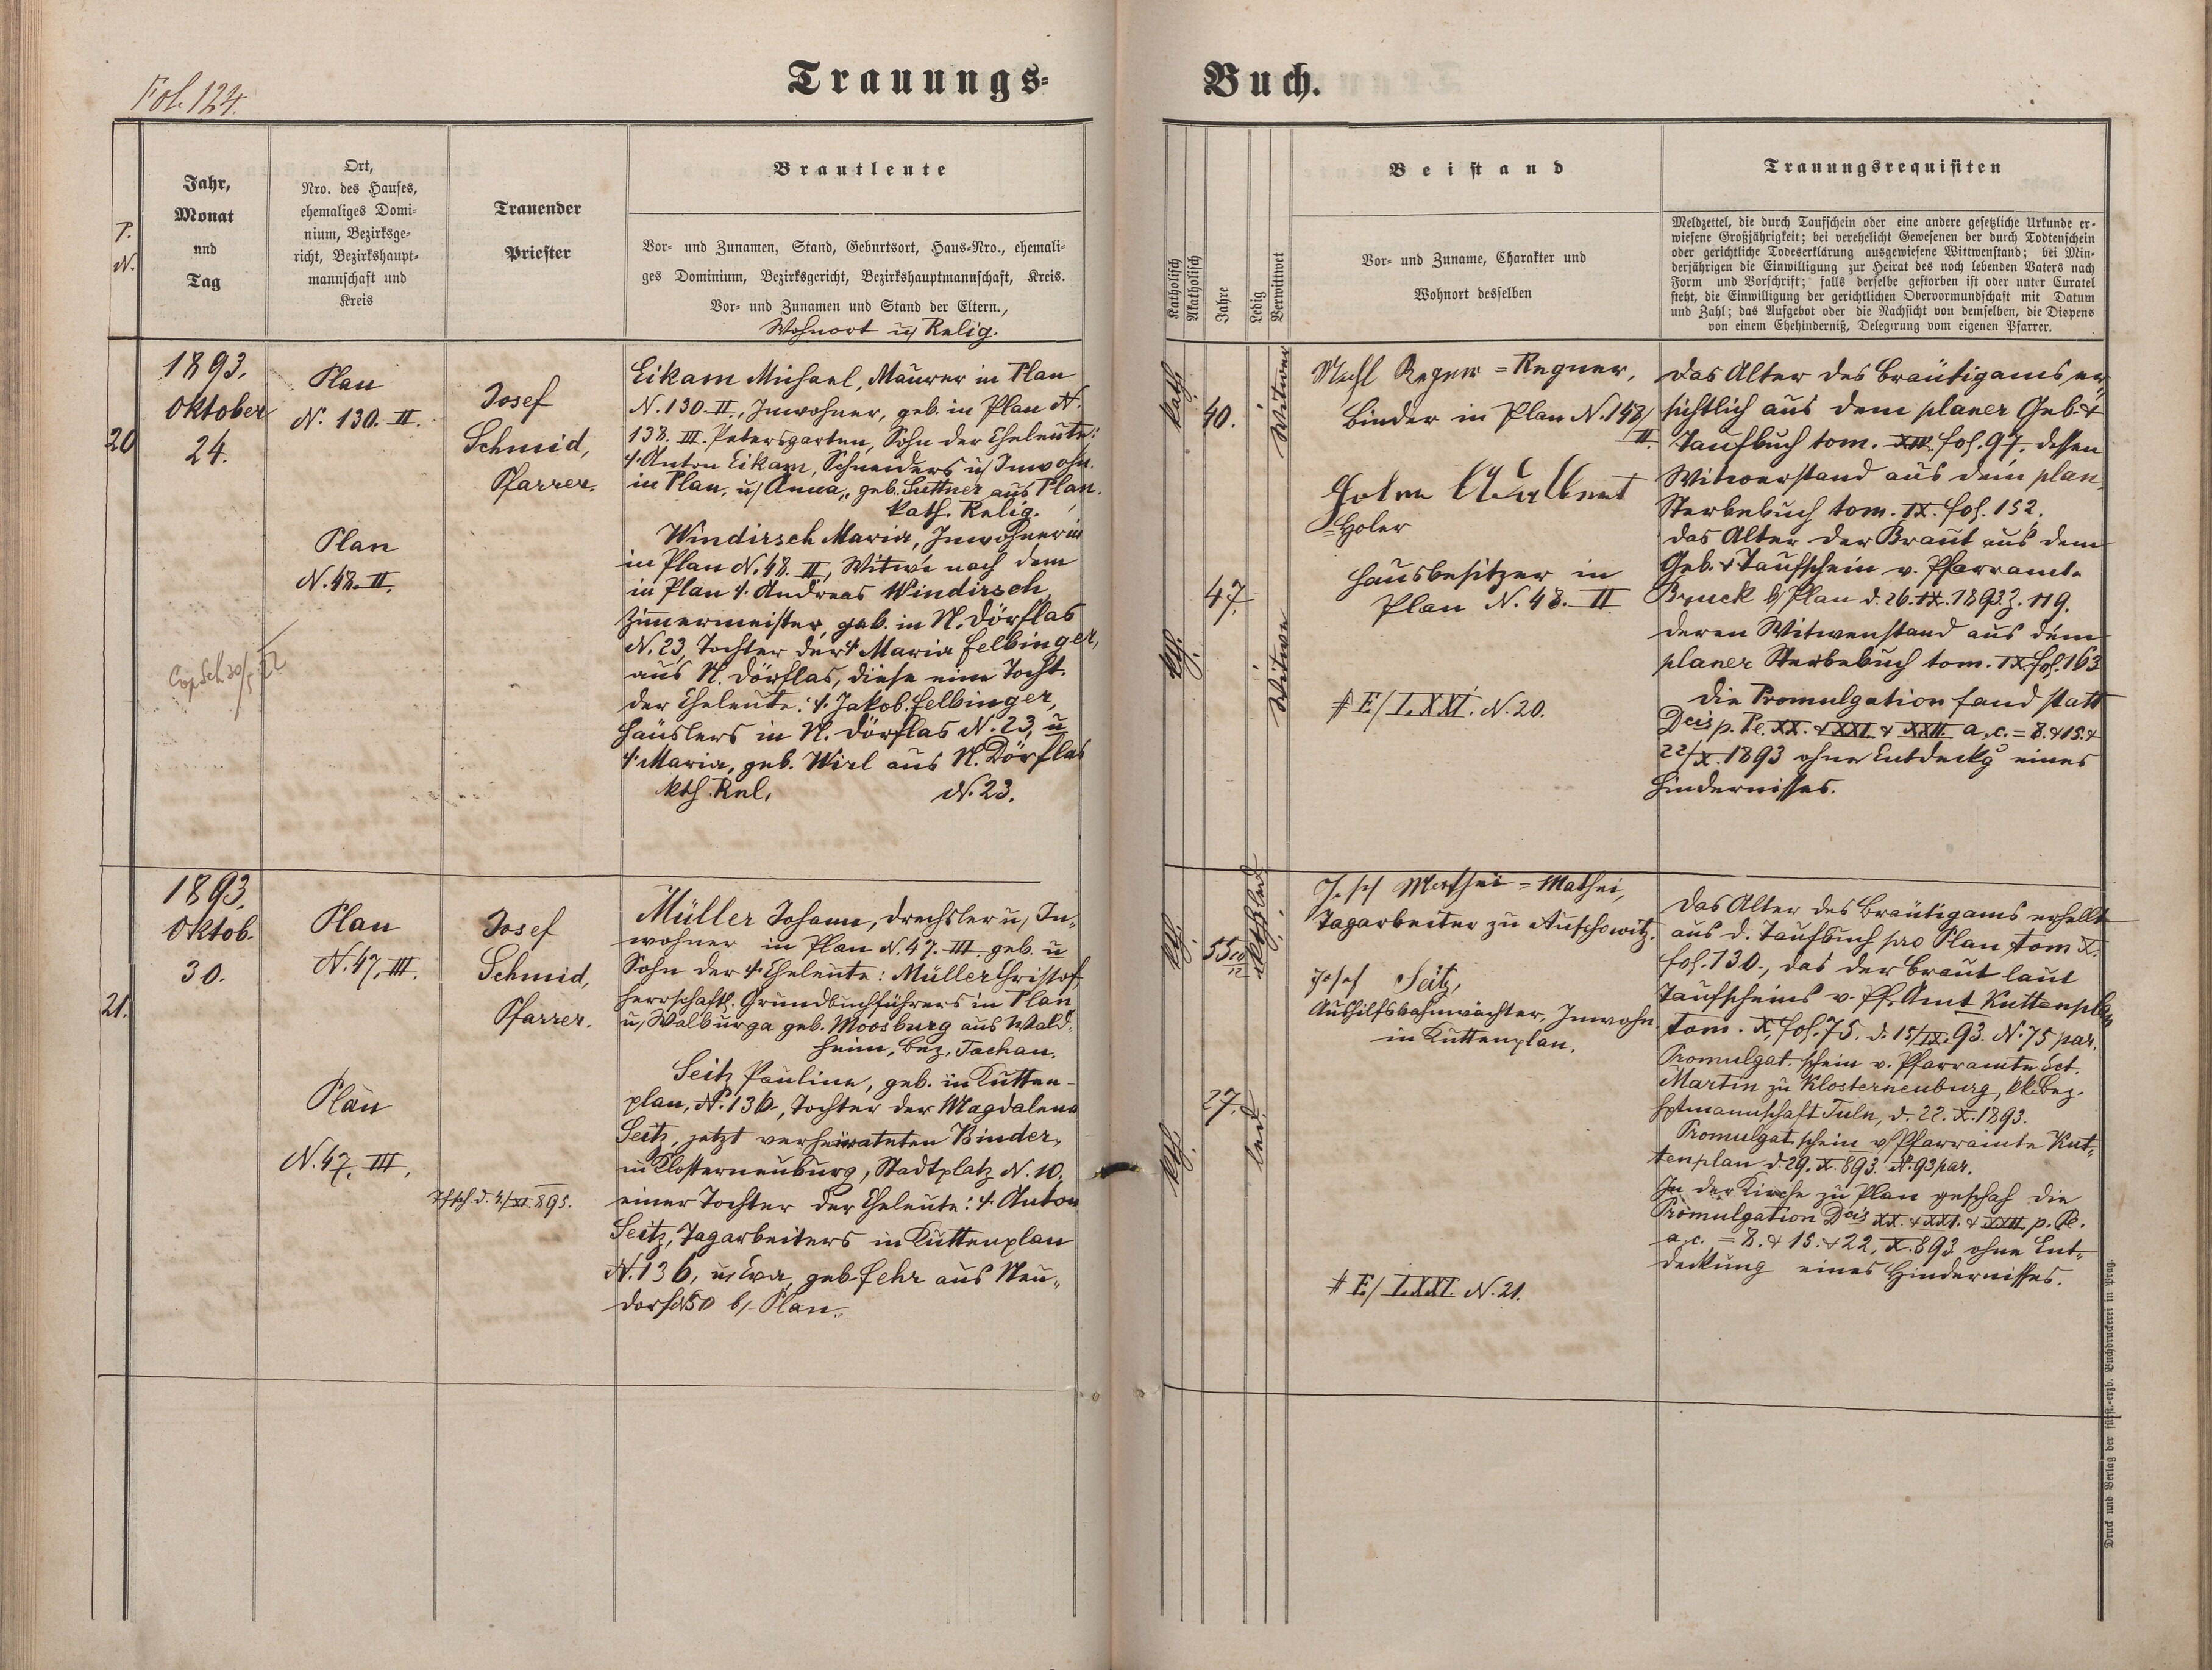 Fol. 124.
Trauungs=
Buch.
P.
N.
Jahr,
Monat
und
Tag
Ort,
Nro. des Hauses,
ehemaliges Domi=
nium, Bezirksge=
richt, Bezirkshaupt=
mannschaft und
Kreis
Trauender
Priester
Brautleute
Vor= und Zunamen, Stand, Geburtsort, Haus=Nro., ehemali=
ges Dominium, Bezirksgericht, Bezirkshauptmannschaft, Kreis.
Vor= und Zunamen und Stand der Eltern.,
Wohnort u/ Relig.
Katholisch
Akatholisch
Jahre
Ledig
Verwittwet
Beistand
Vor= und Zuname, Charakter und
Wohnort desselben
Trauungsrequisiten
Meldzettel, die durch Taufschein oder eine andere gesetzliche Urkunde er=
wiesene Großjährigkeit; bei verehelicht Gewesenen der durch Todtenschein
oder gerichtliche Todeserklärung ausgewiesene Wittwenstand; bei Min=
derjährigen die Einwilligung zur Heirat des noch lebenden Vaters nach
Form und Vorschrift; falls derselbe gestorben ist oder unter Curatel
steht, die Einwilligung der gerichtlichen Obervormundschaft mit Datum
und Zahl; das Aufgebot oder die Nachsicht von demselben, die Dispens
von einem Ehehinderniß, Delegirung vom eigenen Pfarrer.
20
1893.
Oktober
24.
Plan
N. 130. II.
Josef
Schmid,
Pfarrer.
Eikam Michael, Maurer in Plan
N. 130 II, Inwohner, geb. in Plan N.
138. III. Petersgarten, Sohn der Eheleute:
†. Anton Eikam, Schneiders u/ Inwohn.
in Plan, u/ Anna, geb. Suttner aus Plan.
kath. Relig.
Plan
N. 48. II.
Windirsch Maria, Inwohnerin
in Plan N. 48. II, Witwe nach dem
in Plan †. Andreas Windirsch,
Zimmermeister, geb. in N. Dörflas
N. 23, Tochter der † Maria Felbinger,
aus N. Dörflas, diese eine Tocht.
der Eheleute: †. Jakob Felbinger,
Häuslers in N. Dörflas N. 23, u
†. Maria, geb. Wirl aus N. Dörflas
kth. Rel. N. 23.
kath.
40.
Witwer
kth.
47.
Witwe
Regner = Regner,
Binder in Plan N. 148/
II.
Holer
Hausbesitzer in
Plan N. 48. II
# E/ LXXI. N. 20.
Das Alter des Bräutigams er,
sichtlich aus dem planer Geb. &
Taufbuch tom. XIV. fol. 97. dessen
Witwerstand aus dem plan.
Sterbebuch tom. IX. fol. 152.
Das Alter der Braut aus dem
Geb. & Taufschein v. Pfarramte
Bruck b/ Plan d. 26. IX. 1893 Z. 119.
deren Witwenstand aus dem
planer Sterbebuch tom. IX. fol. 163
Die Promulgation fand statt
Dcis p. Pe. XX. & XXI. & XXII. a. c. = 8. & 15. &
22/X. 1893 ohne Entdeckg eines
Hindernisses.
21.
1893.
Oktob.
30.
Plan
N. 47. III.
Josef
Schmid,
Pfarrer.
Müller Johann, Drechsler u/ In,
wohner in Plan N. 47. III. geb. u
Sohn der †. Eheleute: Müller Christof
herrschaftl. Grundbuchführers in Plan
u/ Walburga geb. Moosburg aus Wald,
heim, Bez. Tachau.
Plan
N. 47. III.
d. 4./XI. 893.
Seitz Pauline, geb. in Kutten-
plan, N. 136, Tochter der Magdalena
Seitz, jetzt verheirateten Binder,
in Klosterneuburg, Stadtplatz N. 10.
einer Tochter der Eheleute: †. Anton
Seitz, Tagarbeiters in Kuttenplan
N. 136, u/ Eva, geb. Fehr aus Neu,
dorf N 50 b/ Plan.
kth.
55 10/12
kth.
27.
led.
Mathei = Mathei,
Tagarbeiter zu Auschowitz.
Josef Seitz,
Aushilfsbahnwächter, Inwohn.
in Kuttenplan.
# E/ LXXI. N. 21.
Das Alter des Bräutigams erhellt
aus d. Taufbuch pro Plan tom X.
fol. 130., das der Braut laut
Taufscheins v. Pf. Amt Kuttenplan
tom. X. fol. 75. d. 15/IX. 93. N. 75 par.
Promulgat. schein v. Pfarramte Sct.
Martin zu Klosterneuburg, kk. Bez.
Hptmannschaft Tuln, d. 22. X. 1893.
Promulgat. schein v/ Pfarramte Kut,
tenplan d. 29. X. 893. N. 93 par.
In der Kirche zu Plan geschah die
Promulgation Dcis XX. & XXI. & XXII. p. Pe.
a. c. = 8. & 15. & 22. X. 893 ohne Ent,
deckung eines Hindernisses.
Druck und Verlag der fürst.=erzb. Buchdruckerei in Prag.